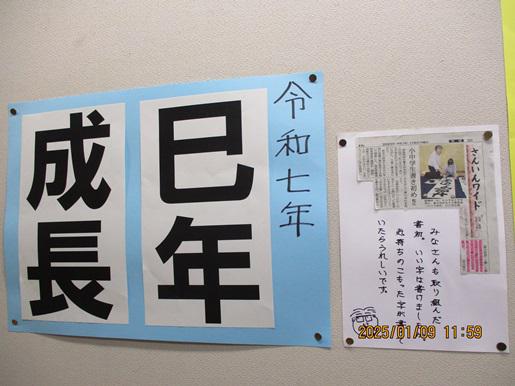 令和七年
巳年
成長
さんいんワイド
小中学生書き初め
みなさんも取り組んだ
書初。いい字は書けまし
気持ちのこもった字が書
いたらうれしいです。
2025/01/09 11:59